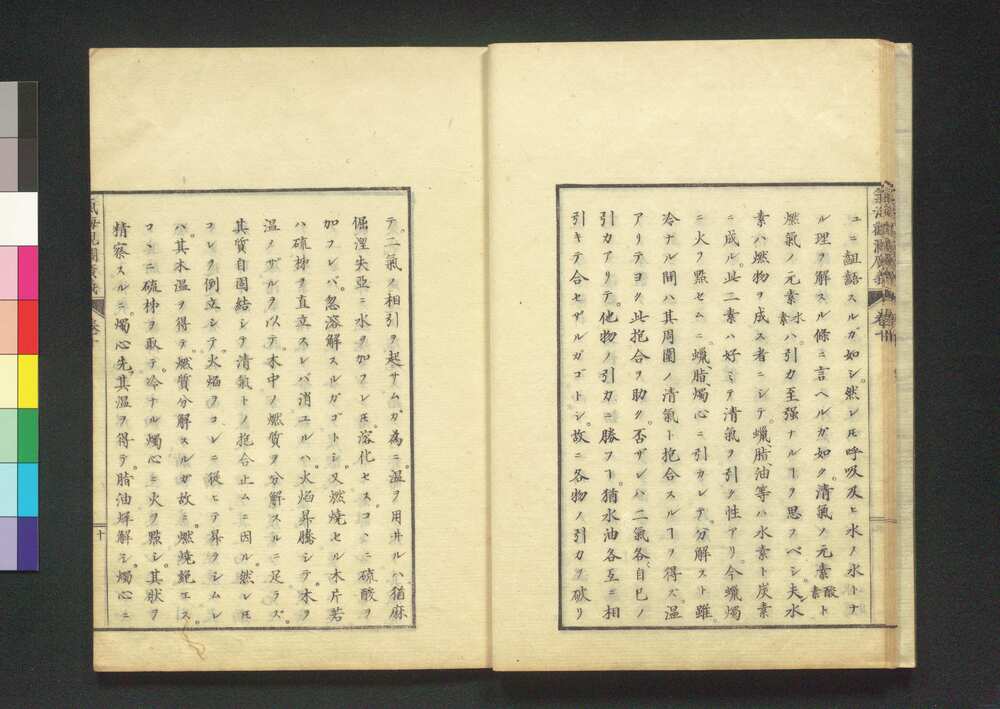 氣海觀瀾廣義 卷十
ユニ齟齬スルガ如シ。然レ𪜈呼吸及ヒ水ノ水トナ
ル理ヲ解スル條ニ言ヘルガ如ク。清氣ノ元素酸素ト
燃氣ノ元素水素ハ引力至强ナルヿヲ思フベシ。夫水
素ハ燃物ヲ成ス者ニシテ。蠟脂油等ハ水素ト炭素
ニ成ル。此二素ハ好ミテ清氣ヲ引ク性アリ。今蠟燭
ニ火ヲ點セムニ。蠟脂燭心ニ引カレテ。分解スト雖。
冷ナル間ハ其周圍ノ清氣ト抱合スルヿヲ得ズ。温
アリテヨク此抱合ヲ助ク。否ザレハ二氣各自己ノ
引力アリテ。他物ノ引力ニ勝フヿ。猶水油各互ニ相
引キテ合セザルガゴトシ。故ニ各物ノ引力ヲ破リ
テ。二氣ノ相引ヲ起サムガ為ニ。温ヲ用井ルハ。猶麻
倔涅失亞ニ水ヲ加フレ𪜈。溶化セス。コヽニ硫酸ヲ
加フレバ。忽溶解スルガゴトシ。又燃燒セル木片若
ハ硫枾ヲ直立スレバ消ユルハ。火焰昇騰シテ。木ヲ
温メザルヲ以テ。木中ノ燃質ヲ分解スルニ足ラズ。
其質自固結シテ清氣トノ抱合止ムニ因ル。然レ𪜈
コレヲ倒立シテ。火焰ヲコレニ從ヒテ昇ラシムレ
ハ。其木温ヲ得テ。燃質分解スルガ故ニ。燃燒絕エス。
コヽニ硫枾ヲ取テ。冷ナル燭心ニ火ヲ點シ。其狀ヲ
情察スルニ。燭心先其温ヲ得テ。脂油烊解シ。燭心ニ
氣海觀瀾廣義 卷十
十